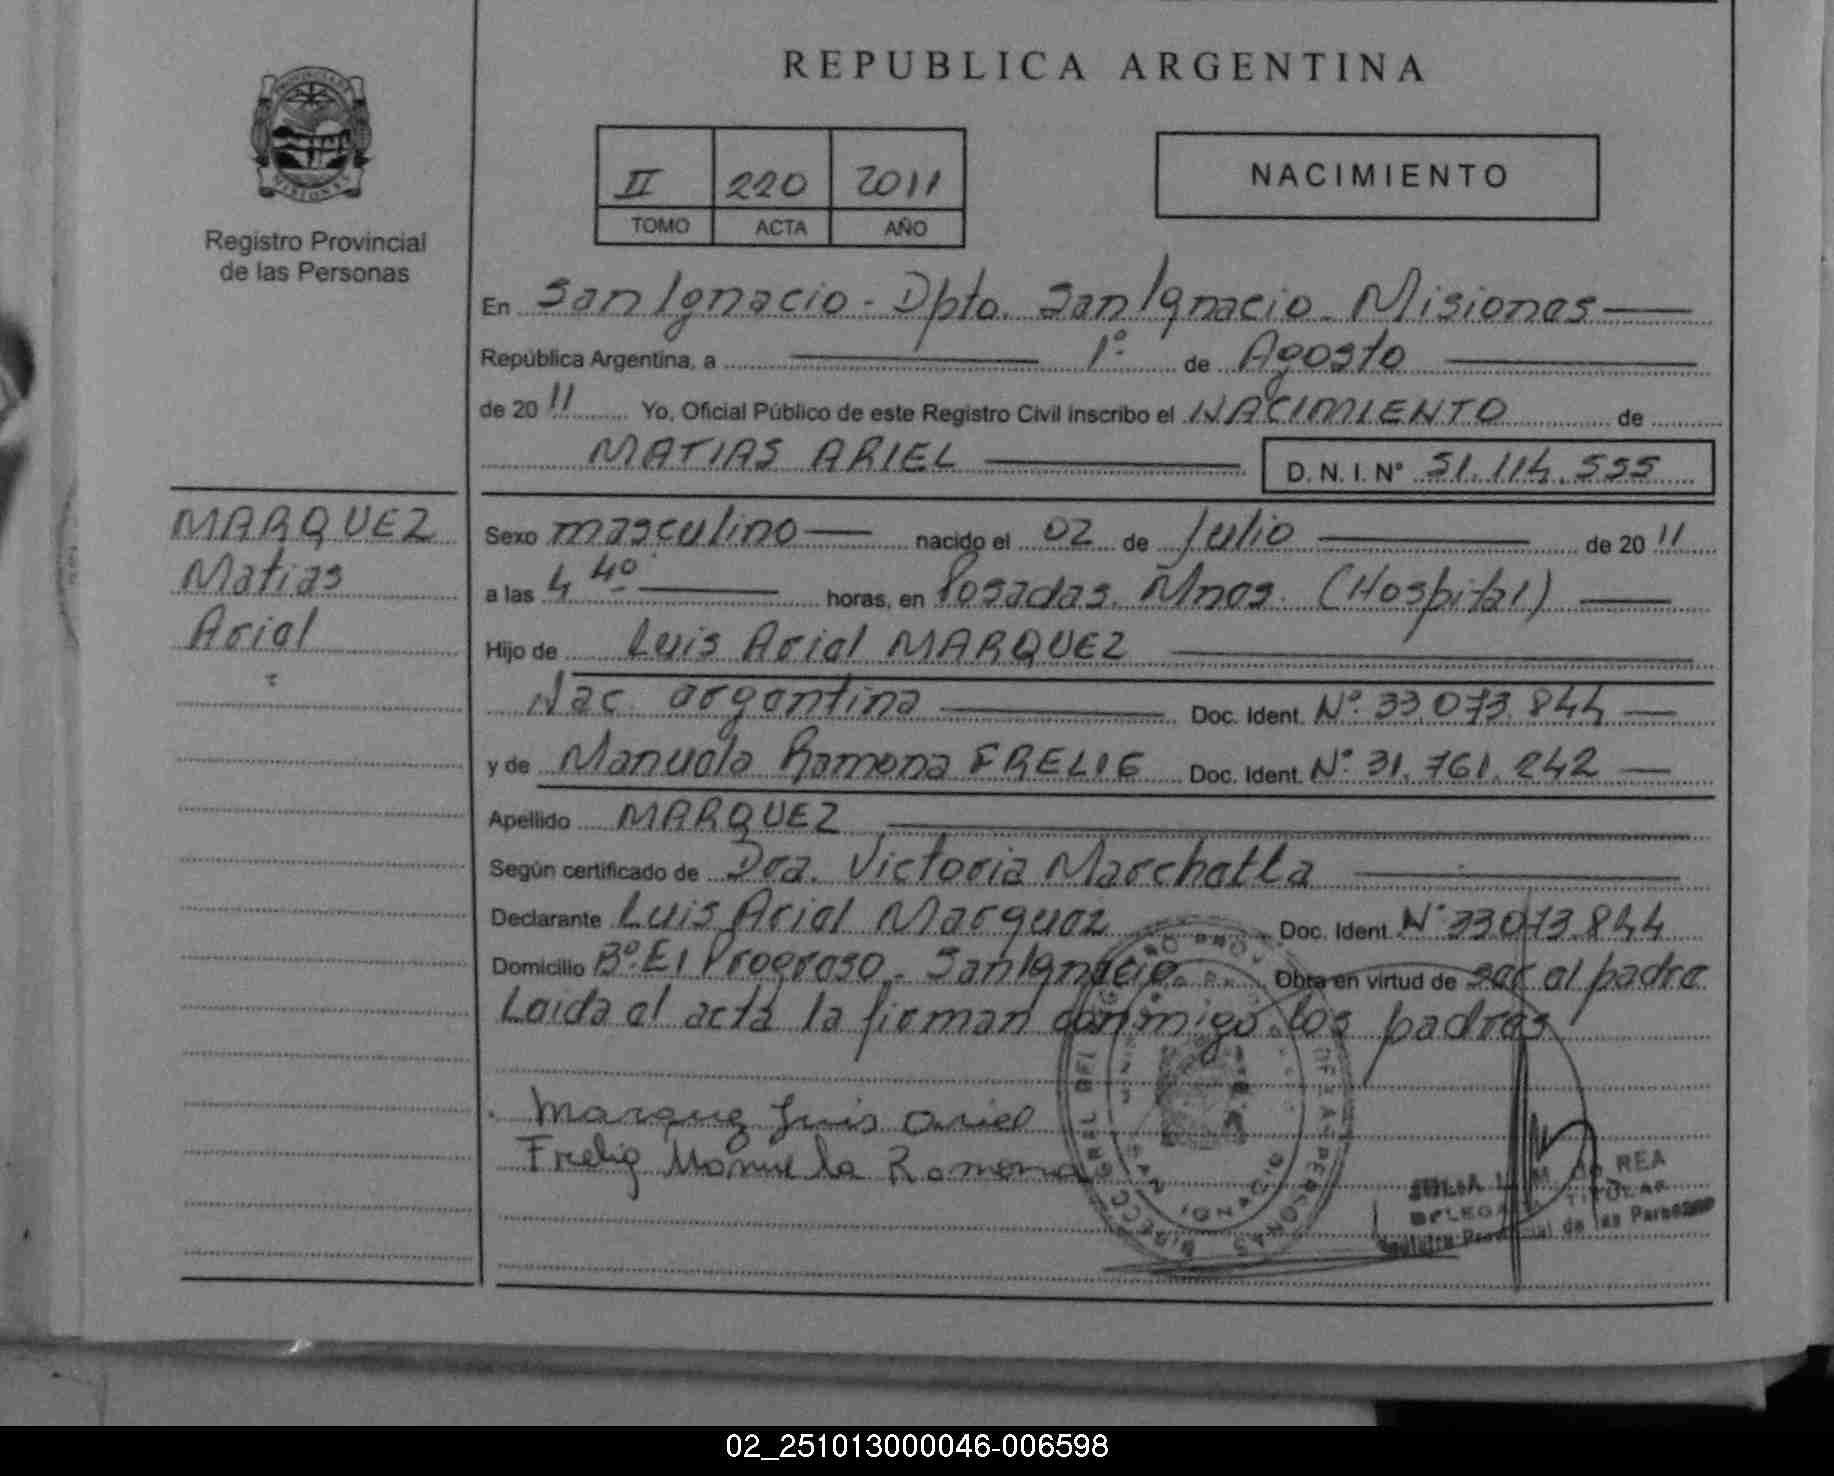 REPUBLICA ARGENTINA
II 220 2011
TOMO ACTA AÑO
NACIMIENTO
PROVINCIA DE
MISIONES
Registro Provincial
de las Personas
En San Ignacio - Dpto. San Ignacio. Misiones
República Argentina, a 1º de Agosto
de 2011 Yo, Oficial Público de este Registro Civil inscribo el NACIMIENTO de
MATIAS ARIEL D. N. I. Nº 51.114.555
MARQUEZ
Matias
Ariel
Sexo masculino nacido el 02 de Julio de 2011
a las 4 40 horas, en Posadas. Mnes. (Hospital)
Hijo de Luis Ariel MARQUEZ
Nac. argentina Doc. Ident. Nº 33.073.844
y de Manuela Ramona FRELIG Doc. Ident. Nº 31.761.242
Apellido MARQUEZ
Según certificado de Dra. Victoria
Declarante Luis Ariel Marquez Doc. Ident. Nº 33073.844
Domicilio Bº. El Progreso - San Ignacio Obra en virtud de ser el padre
Leida el acta la firman conmigo los padres
Marquez Luis Ariel
Frelig Manuela Ramona
REA
TITULAR
de las Personas
02_251013000046-006598